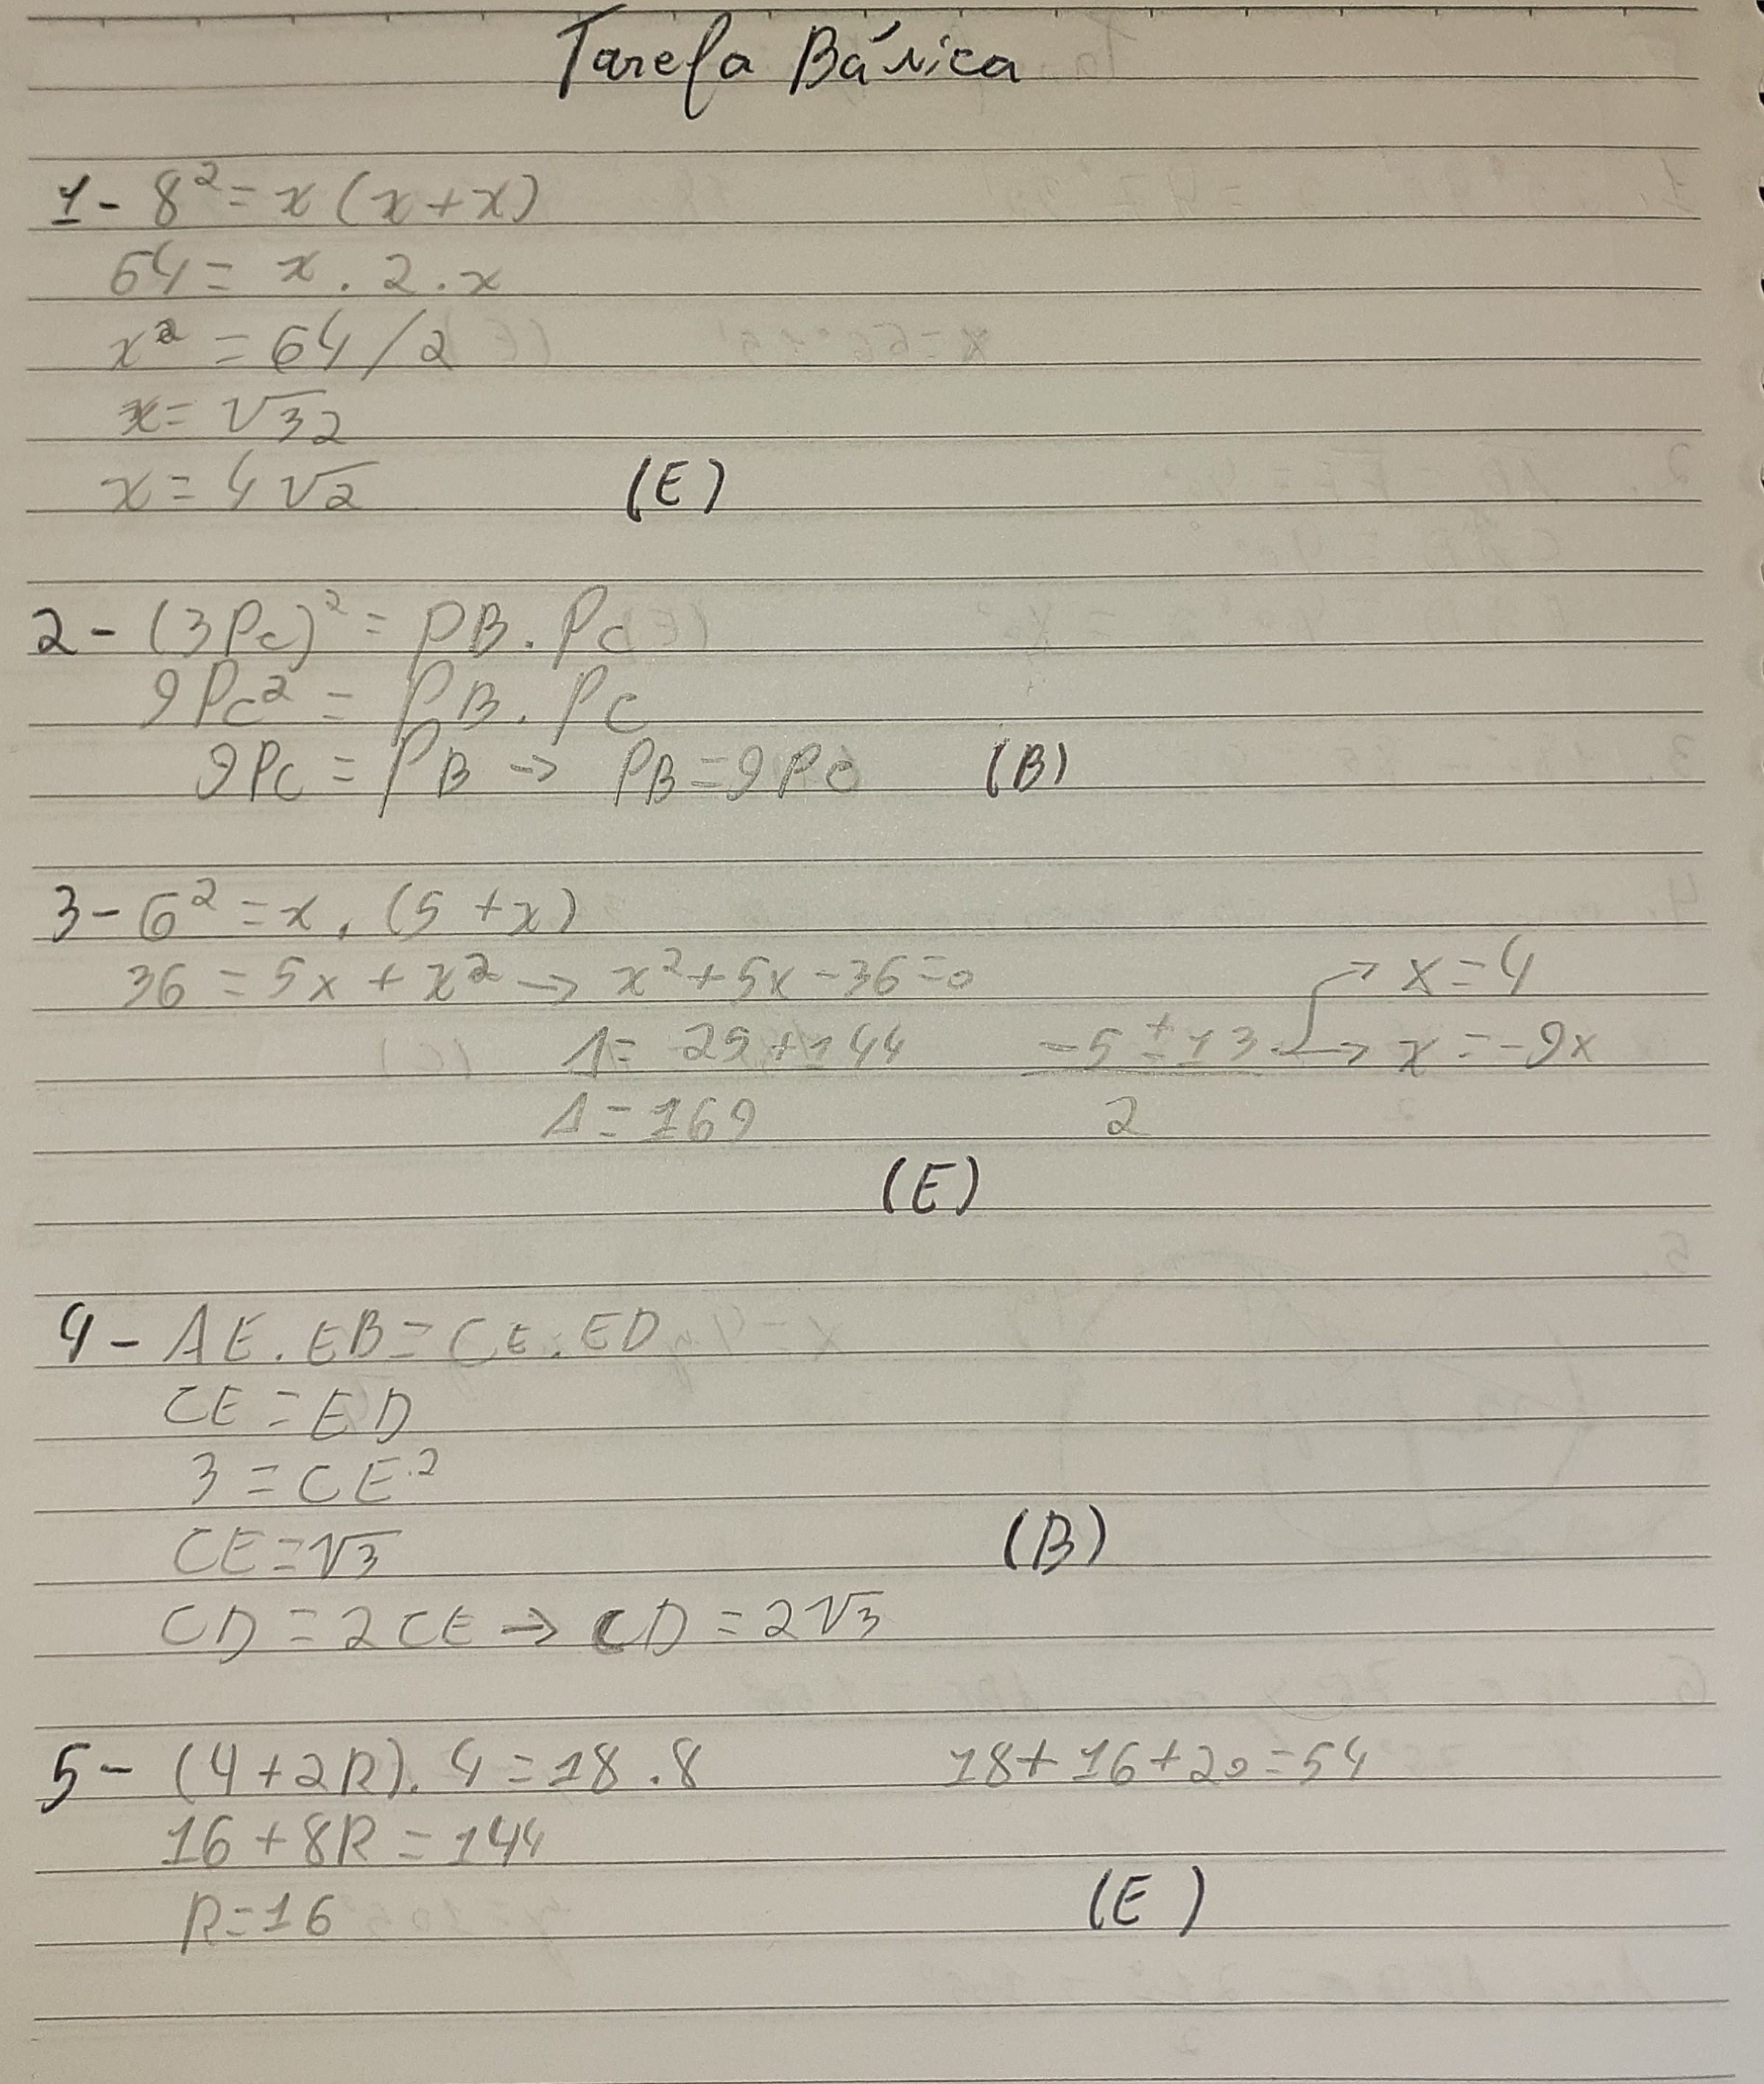 Tarefa Básica
1- 8² = x (x+x)
64 = x . 2 . x
x² = 64/2
x = √32
x = 4√2 (E)
2- (3Pc)² = PB . Pc
9Pc² = PB . PC
9PC = PB → PB = 9PC (B)
3- 6² = x . (5 + x)
36 = 5x + x² → x² + 5x - 36 = 0 → x = 4
Δ = 25 + 144 -5 ± 13 → x = -9x
Δ = 169 2
(E)
4- AE . EB = CE . ED
CE = ED
3 = CE²
CE = √3 (B)
CD = 2CE → CD = 2√3
5- (4+2R) . 4 = 18 . 8 18 + 16 + 20 = 54
16 + 8R = 144
R = 16 (E)